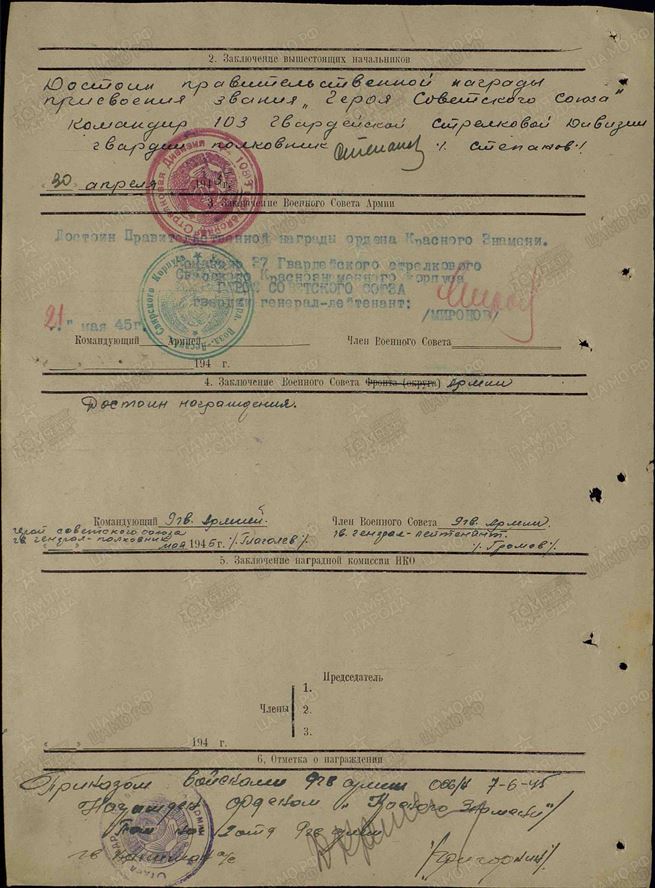 2. Заключение вышестоящих начальников
Достоин правительственной награды
присвоения звания „Героя Советского Союза"
Командир 103 гвардейской стрелковой дивизии
гвардии полковник /. Степанов ./
30 апреля 1945 г.
3. Заключение Военного Совета Армии
Достоин Правительственной награды ордена Красного Знамени.
37 Гвардейского стрелкового
Свирского Краснознаменного корпуса
ГЕРОЙ СОВЕТСКОГО СОЮЗА
гвардии генерал-лейтенант:
/МИРОНОВ/
21 " мая 45г.
Командующий Армией Член Военного Совета
194 г.
4. Заключение Военного Совета Фронта (округа) Армии
Достоин награждения.
Командующий 9 гв. Армией. Член Военного Совета 9 гв. Армии
герой советского союза гв. генерал-лейтенант.
гв. генерал-полковник /. Глаголев ./ /. Громов ./
мая 1945 г.
5. Заключение наградной комиссии НКО
Председатель
Члены
1.
2.
3.
194 г.
6. Отметка о награждении
Приказом войскам 9 гв армии 7-6-45
Награжден орденом